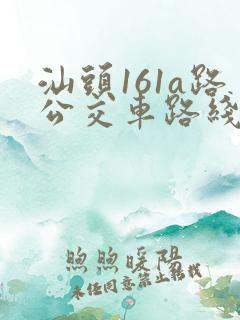 汕頭161a路
公交車路綫
煦煦暖陽
未经同意禁止转载